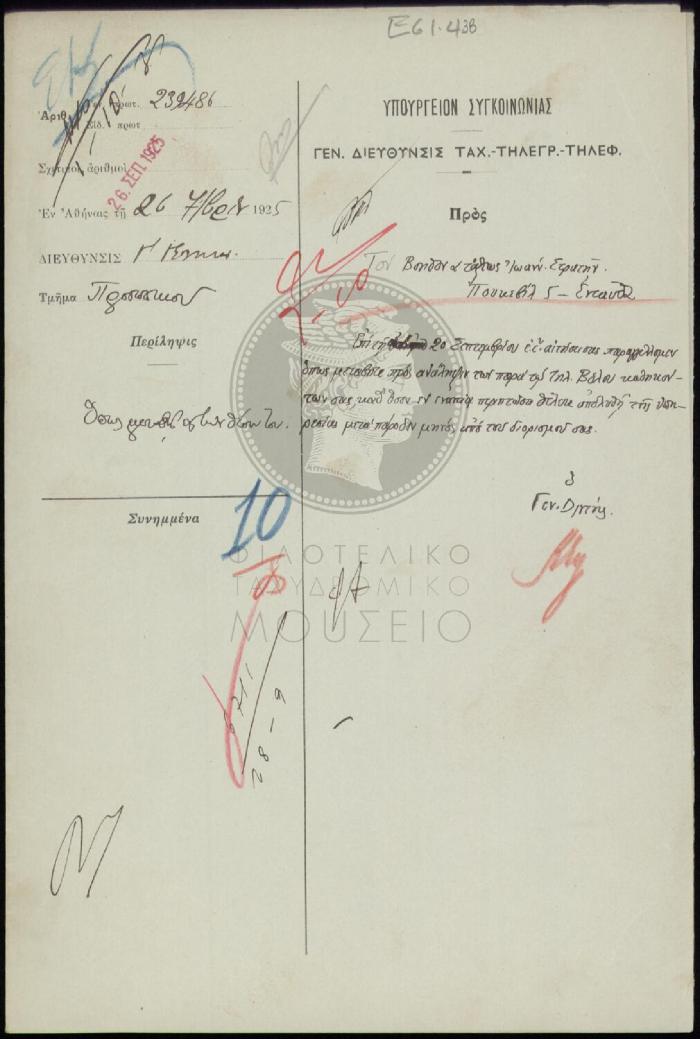 Ε61.43β
Ἀριθ. Γεν. πρωτ. 239486
Εἰδ. πρωτ
Σχετικοὶ ἀριθμοὶ
26. ΣΕΠ 1925
Ἐν Ἀθήναις τῇ 26 7/βρίου 1925
ΔΙΕΥΘΥΝΣΙΣ Γ
Τμῆμα Προσωπικοῦ
Περίληψις
Ὅπως μεταβῇ εἰς τὴν θέσιν του.
Συνημμένα
10
28-9
ΥΠΟΥΡΓΕΙΟΝ ΣΥΓΚΟΙΝΩΝΙΑΣ
ΓΕΝ. ΔΙΕΥΘΥΝΣΙΣ ΤΑΧ.-ΤΗΛΕΓΡ.-ΤΗΛΕΦ.
Πρὸς
Τον Βοηθὸν Ἰωάνν. Στρατήν.
Πουκεβίλ 5 - Ἐνταῦθα
20 Σεπτεμβρίου ἐ.ἔ. αἰτήσεώς σας παραγγέλομεν
ὅπως μεταβῆτε πρὸς ἀνάληψιν τῶν παρὰ τῷ Τηλ. Βόλου καθηκόν-
των σας καθ' ὅσον ἐν ἐναντίᾳ περιπτώσει θέλετε ἀπολυθῆ τῆς ὑπη-
ρεσίας μετὰ πάροδον μηνὸς ἀπὸ τοῦ διορισμοῦ σας.
Ὁ
Γεν. Δ/ντής.
ΦΙΛΟΤΕΛΙΚΟ
ΤΑΧΥΔΡΟΜΙΚΟ
ΜΟΥΣΕΙΟ